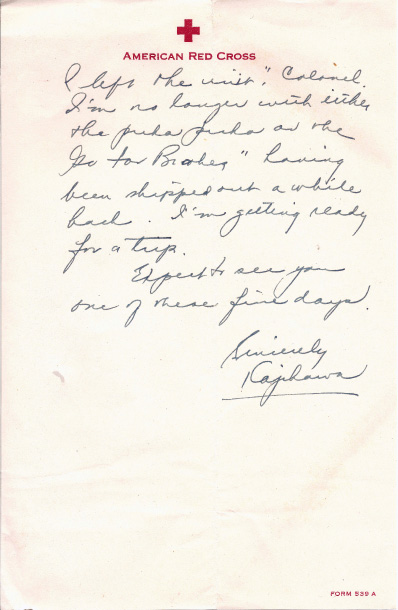 AMERICAN RED CROSS
I left the unit, Colonel.
I'm no longer with either
the puka puka or the
Go for Brokes" having
been shipped out a while
back. I'm getting ready
for a trip.
Expect to see you
one of these fine days.
Sincerely
Kajikawa
FORM 539 A